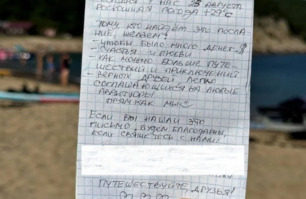 У НАС 28 АВГУСТ
РОСКОШНАЯ ПОГОДА +29°C
ТОМУ, КТО НАЙДЁТ ЭТО ПОСЛА
НИЕ, ЖЕЛАЕМ:
- ЧТОБЫ БЫЛО МНОГО ДЕНЕГ
- СЧАСТЬЯ И ЛЮБВИ
- КАК МОЖНО БОЛЬШЕ ПУТЕ-
ШЕСТВИЙ И ПРИКЛЮЧЕНИЙ
- ВЕРНЫХ ДРУЗЕЙ ЛЕГКО
СОГЛАШАЮЩИХСЯ НА ЛЮБЫЕ
АВАНТЮРЫ
ПРЯМ КАК МЫ
ЕСЛИ ВЫ НАШЛИ ЭТО
ПИСЬМО, БУДЕМ БЛАГОДАРНЫ,
ЕСЛИ СВЯЖЕТЕСЬ С НАМИ:
ПУТЕШЕСТВУЙТЕ, ДРУЗЬЯ!